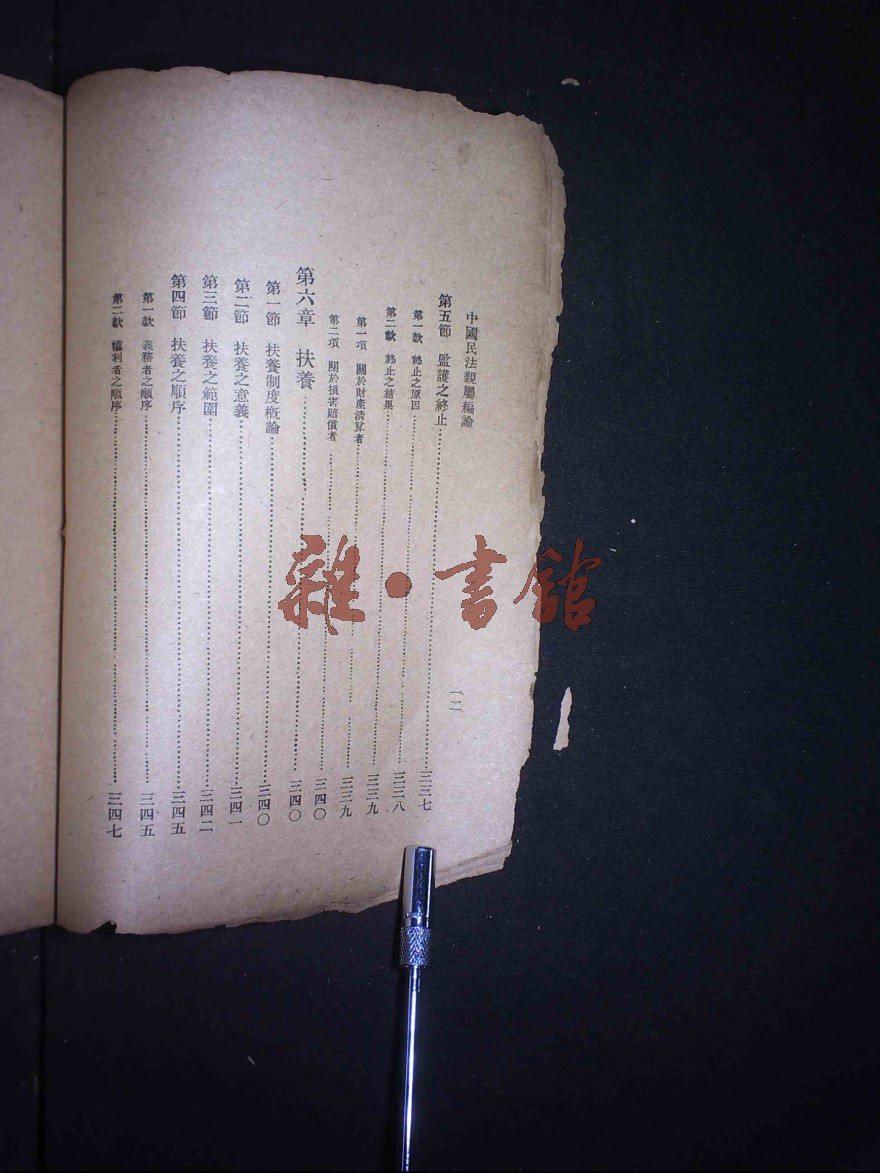 中國民法親屬編論
一二
第五節 監護之終止 三三七
第一款 終止之原因 三三八
第二款 終止之結果 三三九
第一項 關於財產清算者 三三九
第二項 關於損害賠償者 三四〇
第六章 扶養 三四〇
第一節 扶養制度概論 三四〇
第二節 扶養之意義 三四一
第三節 扶養之範圍 三四二
第四節 扶養之順序 三四五
第一款 義務者之順序 三四五
第二款 權利者之順序 三四七
雜·書館